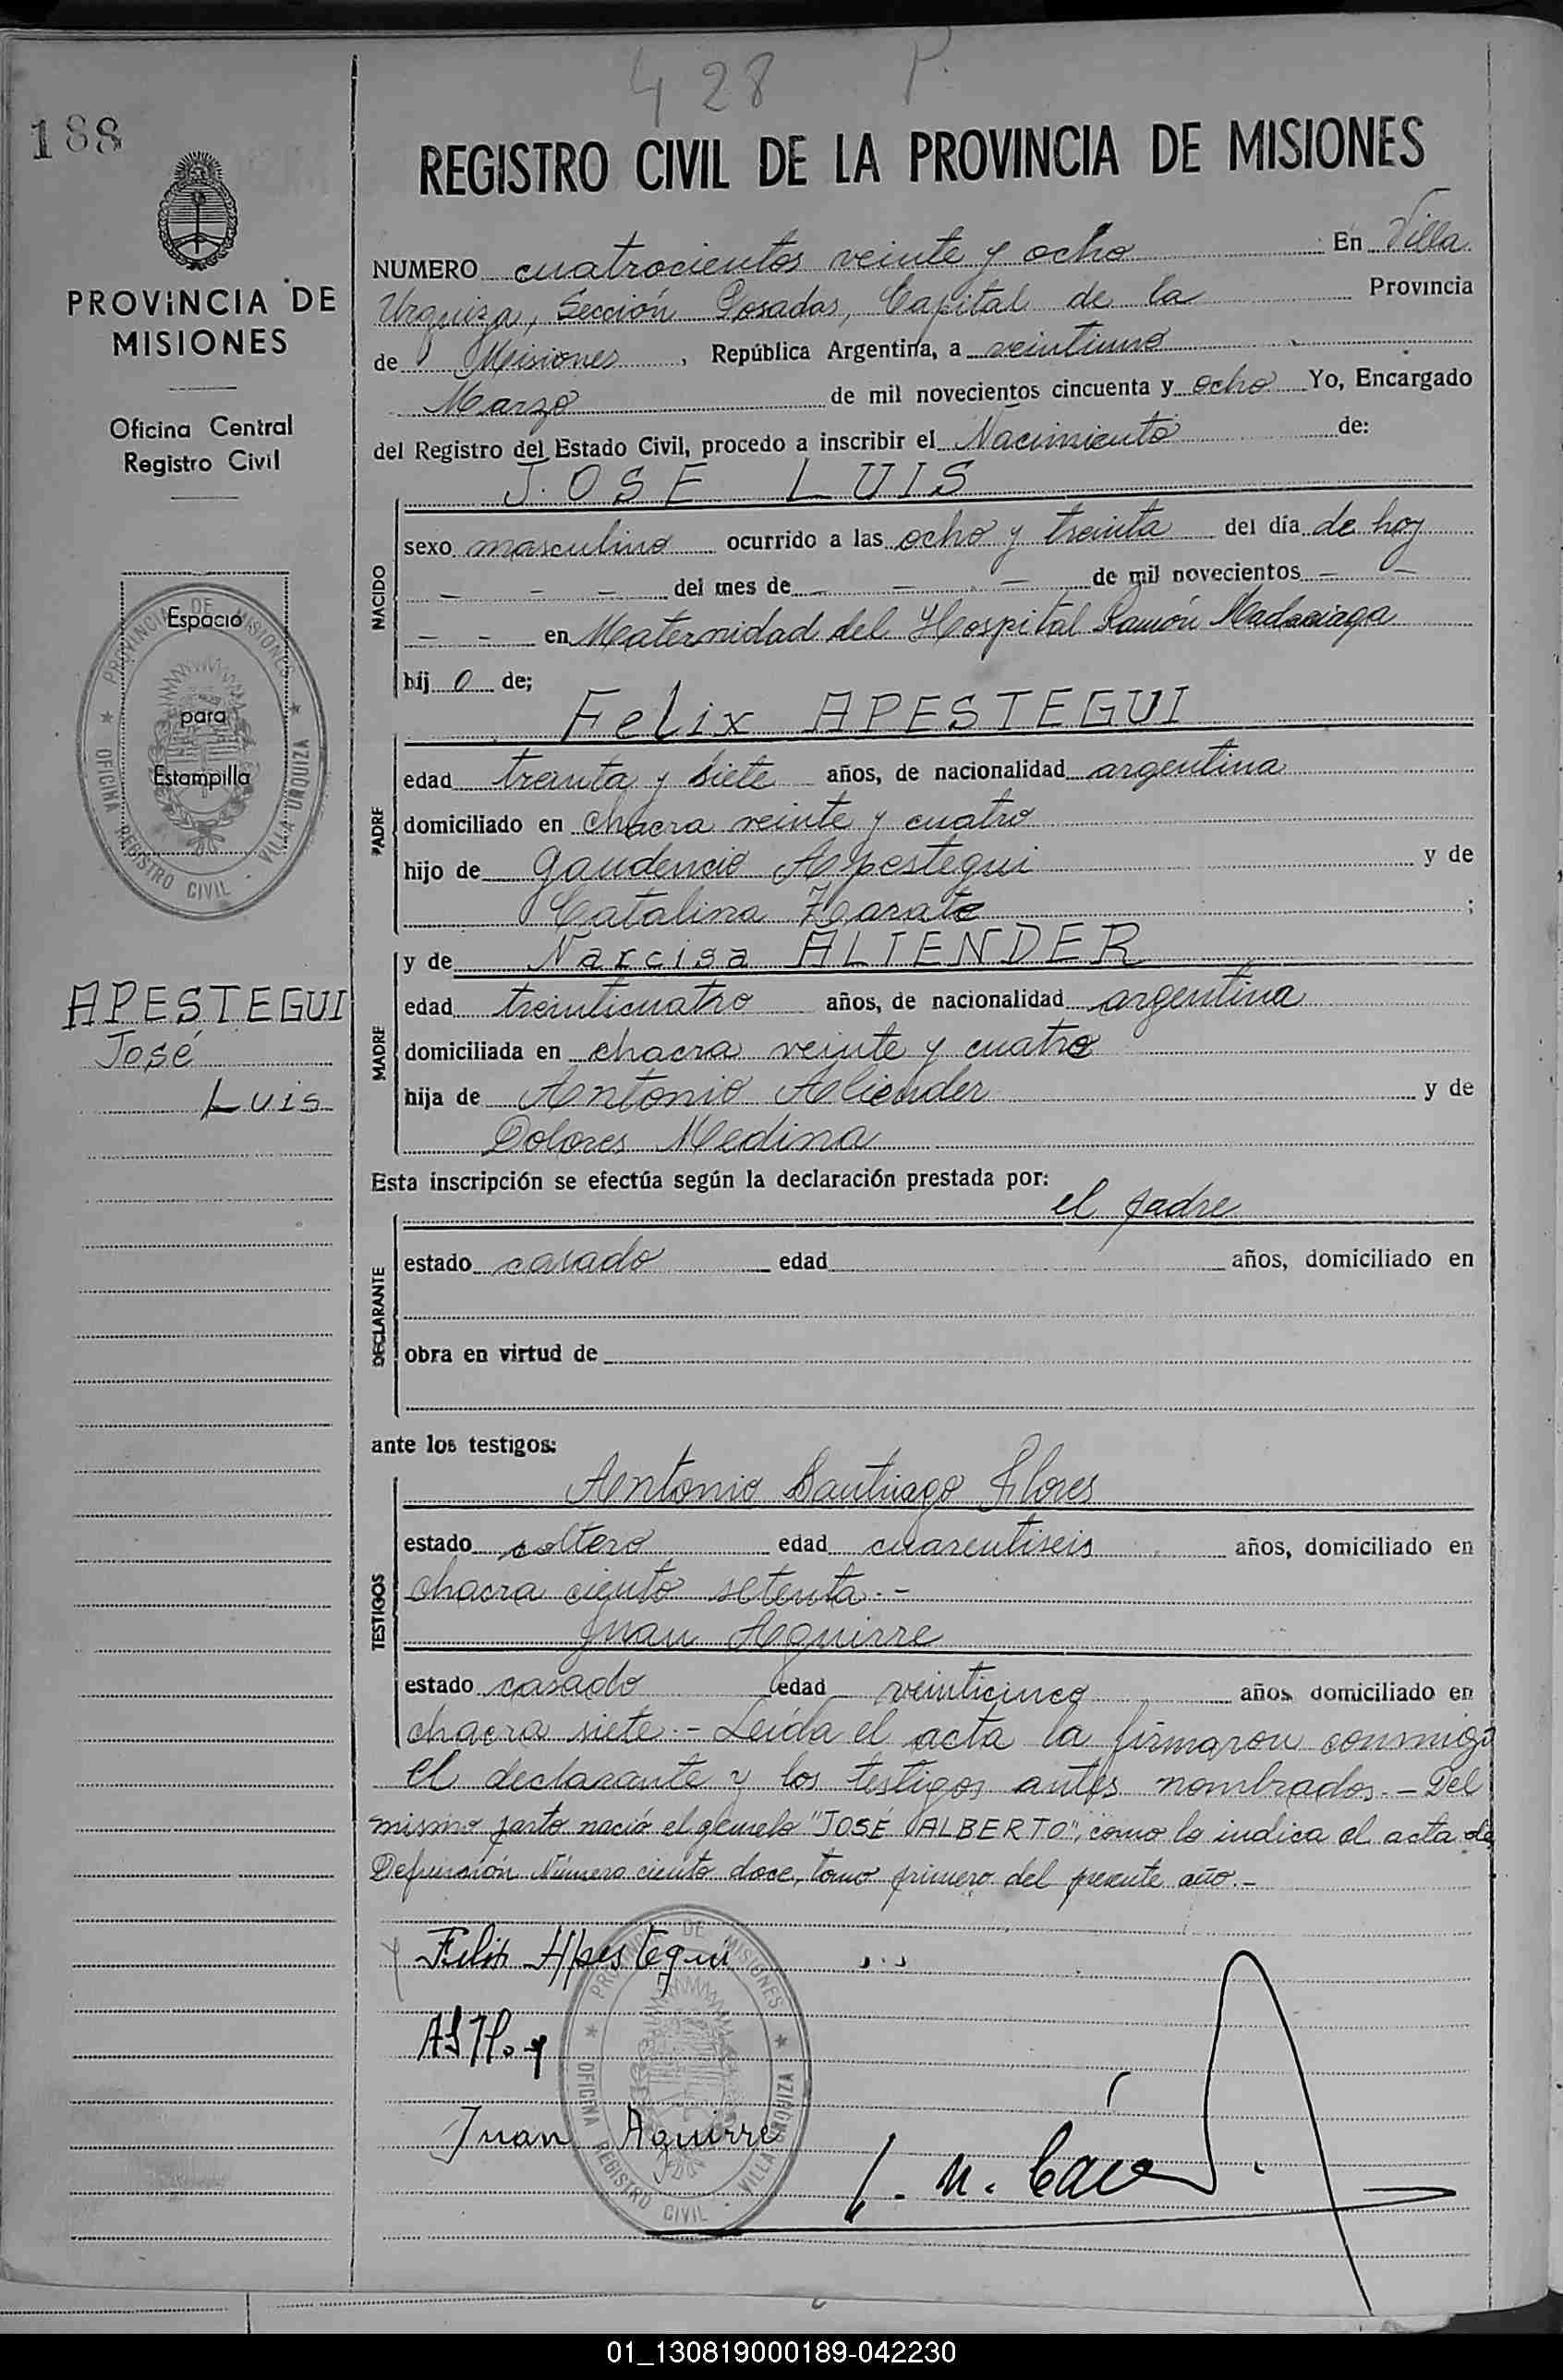 428 P.
188
REGISTRO CIVIL DE LA PROVINCIA DE MISIONES
PROVINCIA DE
MISIONES
Oficina Central
Registro Civil
Espacio
para
Estampilla
PROVINCIA DE MISIONES
OFICINA REGISTRO CIVIL - VILLA URQUIZA
APESTEGUI
José
Luis
NUMERO cuatrocientos veinte y ocho En Villa
Urquiza, Sección Posadas, Capital de la Provincia
de Misiones, República Argentina, a veintiuno
Marzo de mil novecientos cincuenta y ocho Yo, Encargado
del Registro del Estado Civil, procedo a inscribir el Nacimiento de:
JOSE LUIS
NACIDO
sexo masculino ocurrido a las ocho y treinta del día de hoy
- - - del mes de - - de mil novecientos - -
- - en Maternidad del Hospital Ramón Madariaga
hij o de;
Felix APESTEGUI
PADRE
edad treinta y siete años, de nacionalidad argentina
domiciliado en chacra veinte y cuatro
hijo de Gaudencio Apestegui y de
Catalina Zarate ;
y de Narcisa ALIENDER
MADRE
edad treinticuatro años, de nacionalidad argentina
domiciliada en chacra veinte y cuatro
hija de Antonio Aliender y de
Dolores Medina
Esta inscripción se efectúa según la declaración prestada por:
el padre
DECLARANTE
estado casado edad años, domiciliado en
obra en virtud de
ante los testigos:
Antonio Santiago Flores
TESTIGOS
estado soltero edad cuarentiseis años, domiciliado en
chacra ciento setenta.-
Juan Aguirre
estado casado edad veinticinco años domiciliado en
chacra siete.- Leída el acta la firmaron conmigo
el declarante y los testigos antes nombrados.- Del
mismo parto nació el gemelo "JOSÉ ALBERTO", como lo indica el acta de
Defunción Número ciento doce, tomo primero del presente año.-
Felix Apestegui
Juan Aguirre
PROVINCIA DE MISIONES
OFICINA REGISTRO CIVIL - VILLA URQUIZA
01_130819000189-042230